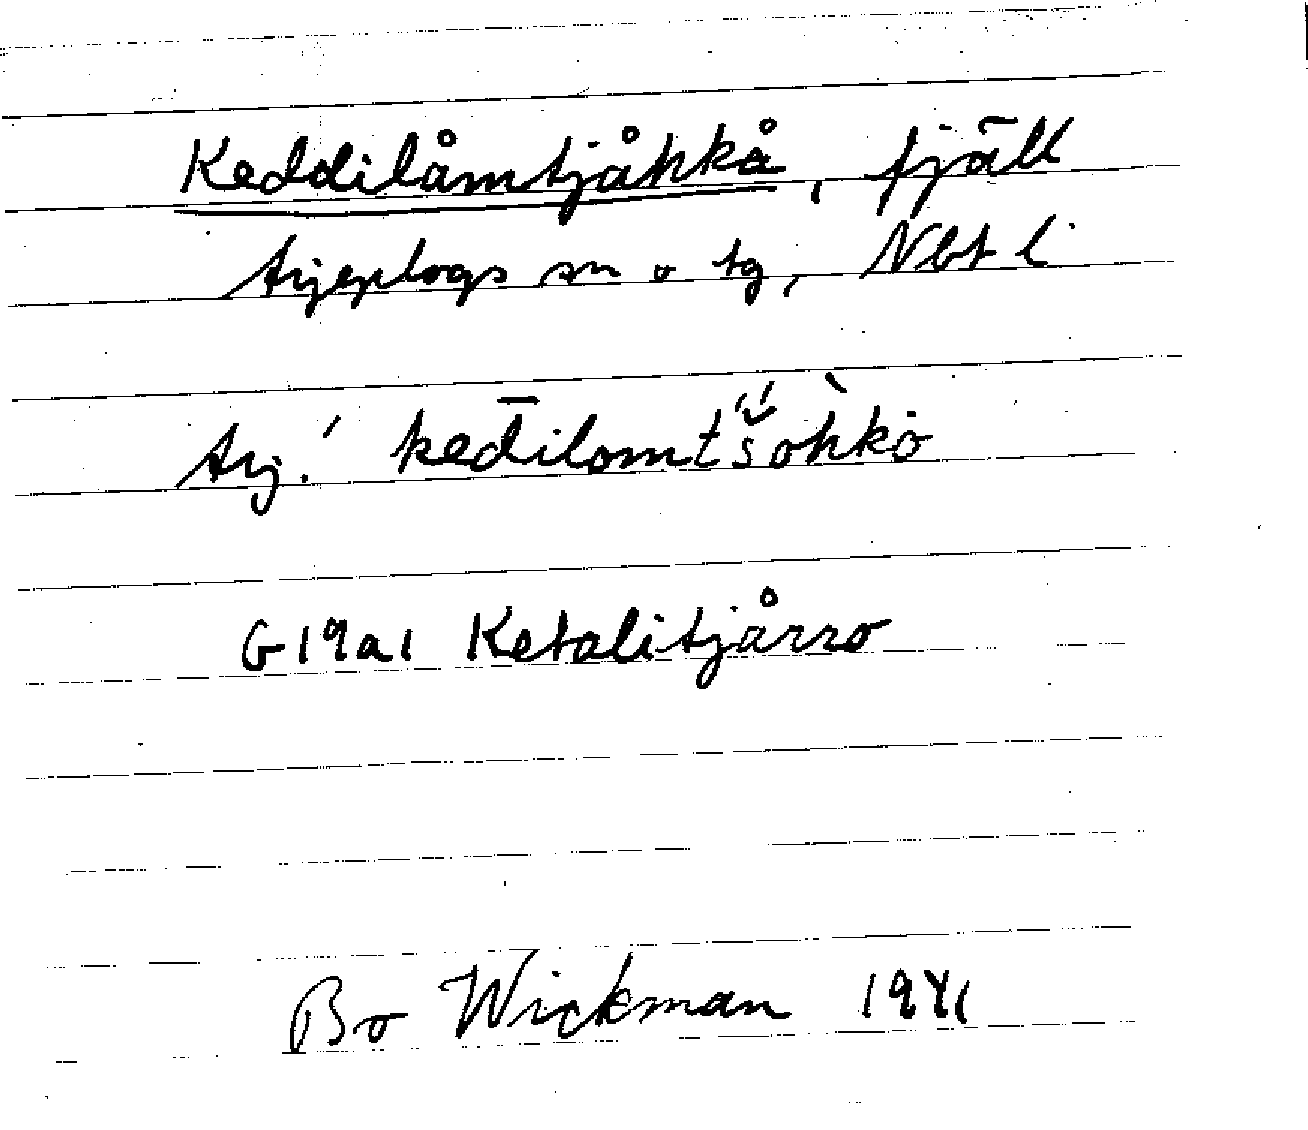 Keddilåmtjåhkå, fjäll
Arjeplogs sn o tg, Nbt l
Arj.' kēdilomtšohko
G19a1 Ketalitjårro
Bo Wickman 1941